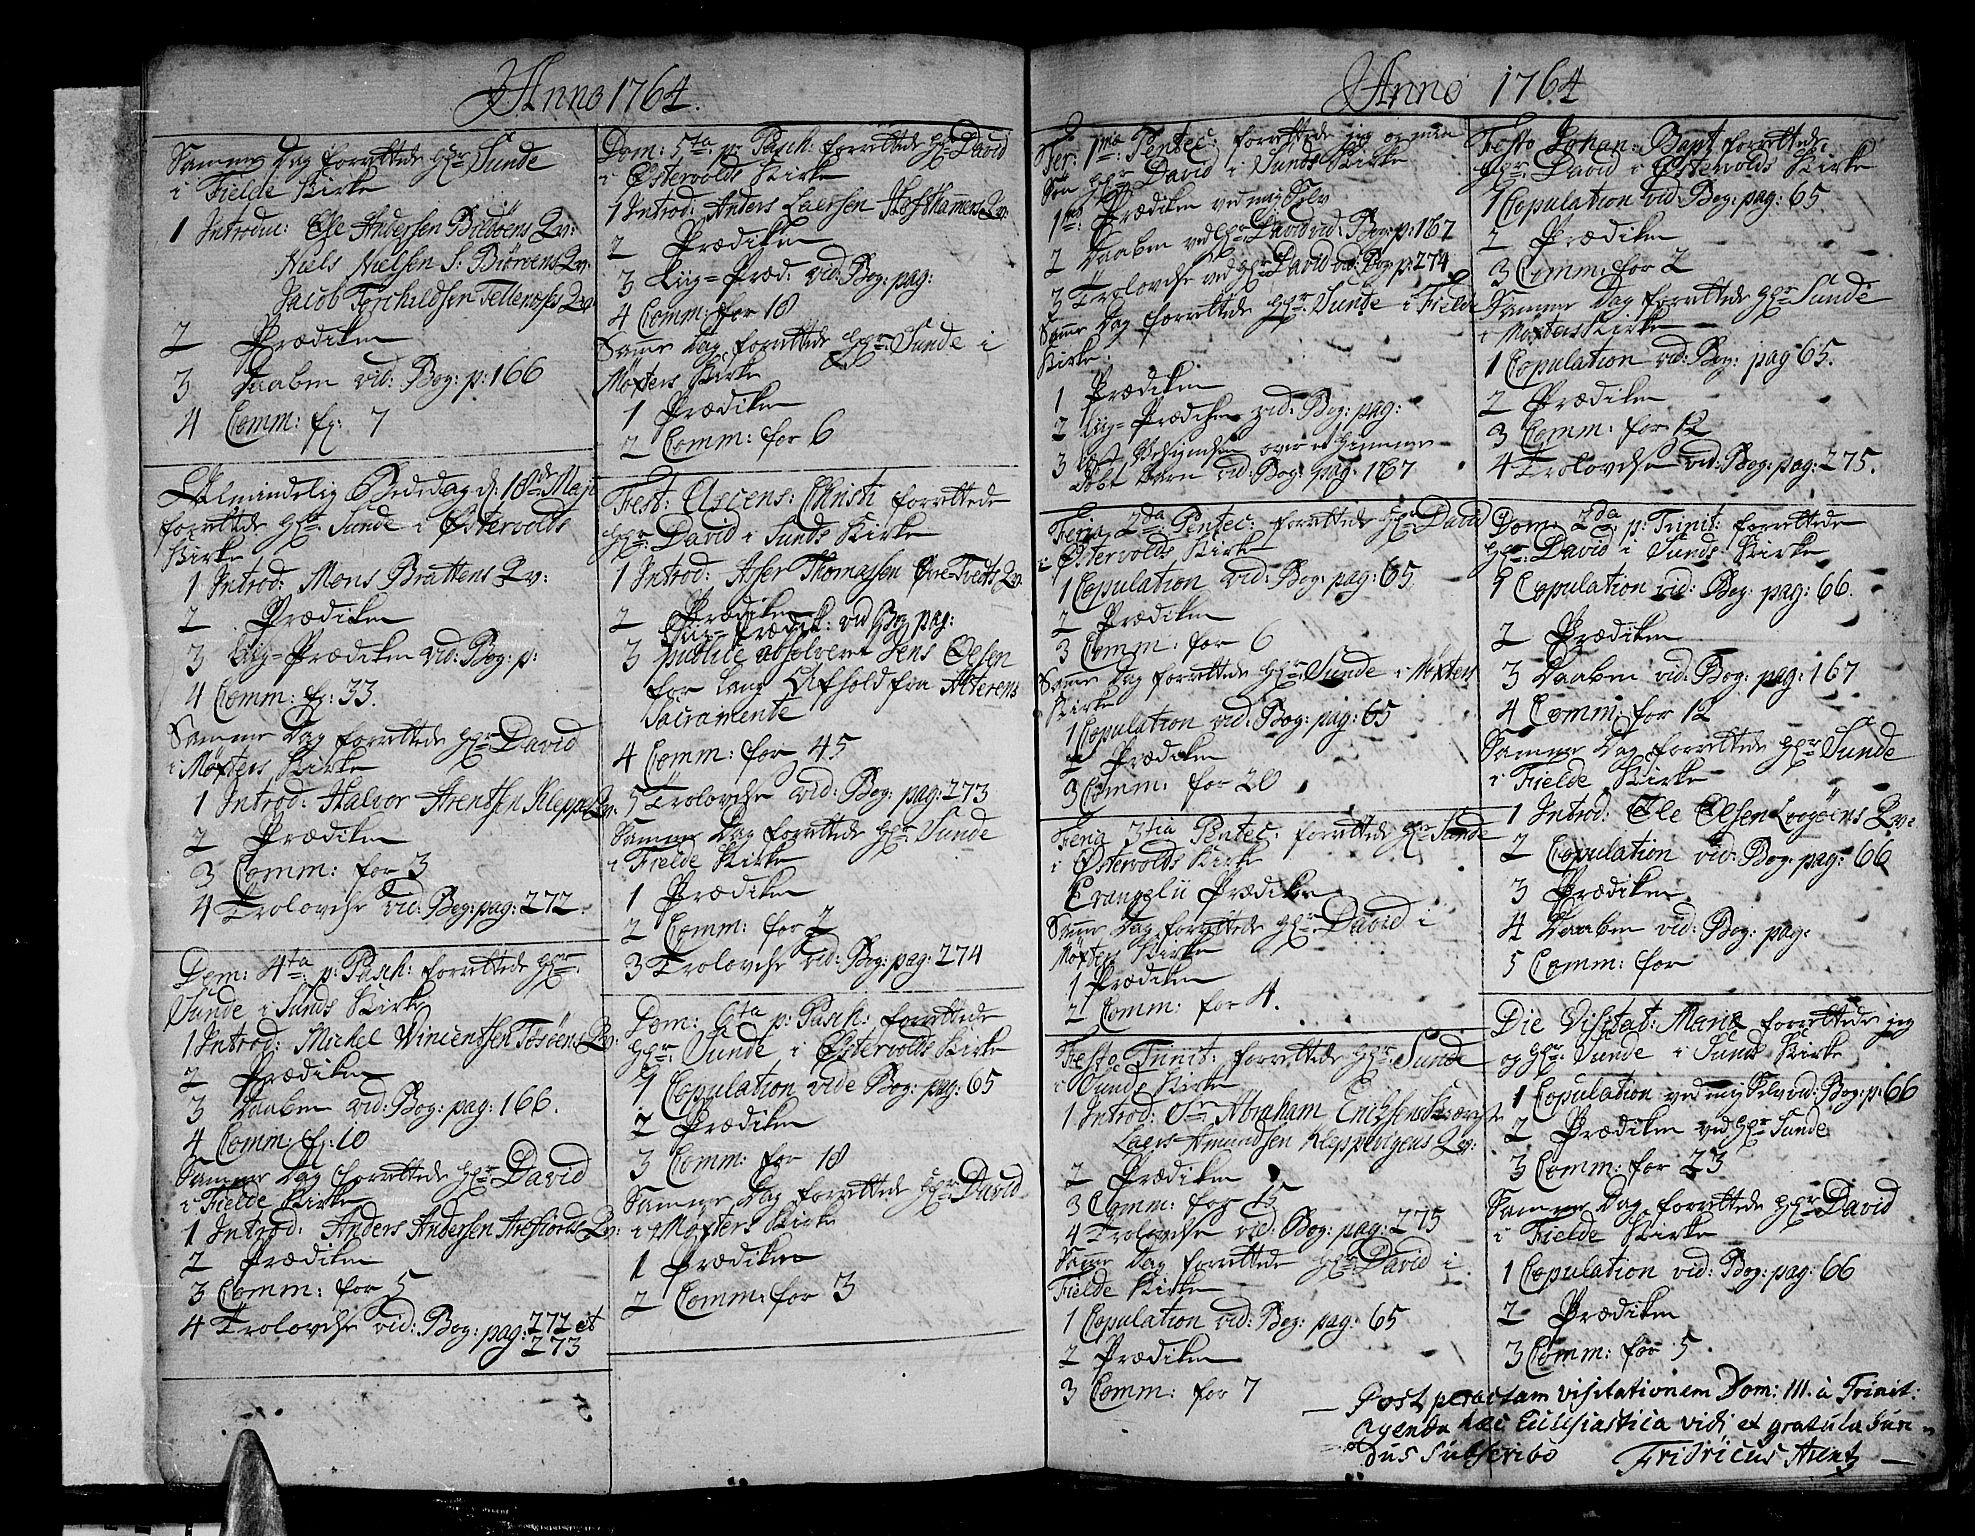 Anno 1764.
Samme Dag forrettede Hr. Sunde
i Fielde Kirke
1 Introduc: Ole Andersen Bildøens Qv:
Niels Nielsen S. Biørøens Qv:
Jacob Torchildsen Tellenæses Qv:
2 Prædiken
3 Daaben vid: Bog: p: 166
4 Comm: f: 7
Almindelig Bededag d: 18de Maji
forrettede Hr. Sunde i Østervolds
Kirke
1 Introd: Mons Brattens Qv:
2 Prædiken
3 Liig-Prædiken vid: Bog: p:
4 Comm: f: 33.
Samme Dag forrettede Hr. David
i Møxters Kirke
1 Introd: Halvor Arentsen Klepps Qv:
2 Prædiken
3 Comm: for 3
4 Trolovelse vid: Bog: pag: 272.
Dom: 4ta p: Pasch: forrettede Hr.
Sunde i Sunds Kirke
1 Introd: Michel Vincentsen Tøsøens Qv:
2 Prædiken
3 Daaben vid: Bog: pag: 166.
4 Comm: f: 10
Samme Dag forrettede Hr. David
i Fielde Kirke
1 Introd: Anders Andersen Arefiords Qv:
2 Prædiken
3 Comm: for 5
4 Trolovelse vid: Bog: pag: 272 et
273
Dom: 5ta p: Pasch: forrettede Hr. David
i Østervolds Kirke
1 Introd: Anders Laersen Hofthamers Qv:
2 Prædiken
3 Liig-Præd: vid: Bog: pag:
4 Comm: for 18
Samme Dag forrettede Hr. Sunde i
Møxters Kirke
1 Prædiken
2 Comm: for 6
Fest: Ascens: Christi forrettede
Hr. David i Sunds Kirke
1 Introd: Asser Thomassen Øvre-Tvedts Qv:
2 Prædiken
Liig-Prædik: vid Bog pag:
3 publice absolveret Jens Olsen
for lang Afhold fra Alterens
Sacramente
4 Comm: for 45
5 Trolovelse vid: Bog: pag: 273
Samme Dag forrettede Hr. Sunde
i Fielde Kirke
1 Prædiken
2 Comm: for 2
3 Trolovelse vid: Bog: pag: 274
Dom: 6ta p: Pasch: forrettede
Hr. Sunde i Østervolds Kirke
1 Copulation vide Bog: pag: 65
2 Prædiken
3 Comm: for 18
Samme Dag forrettede Hr. David
i Møxters Kirke
1 Prædiken
2 Comm: for 3
Anno 1764
Fer: 1ma Pentec: forrettede jeg og min
Søn Hr. David i Sunds Kirke
1mo Prædiken ved mig Selv
2 Daaben ved Hr. David vid: Bog: p: 167
3 Trolovelse ved Hr. David vid: Bog: p: 274
Samme Dag forrettede Hr. Sunde i Fielde
Kirke
1 Prædiken
2 Liig-Prædiken vid: Bog: pag:
3 over et hiemme
døbt Barn vid: Bog: pag: 167
Feria 2da Pentec: forrettede Hr. David
i Østervolds Kirke
1 Copulation vid: Bog: pag: 65
2 Prædiken
3 Comm: for 6
Samme Dag forrettede Hr. Sunde i Møxters
Kirke
1 Copulation vid: Bog: pag: 65
2 Prædiken
3 Comm: for 20
Feria 3tia Pentec: forrettede Hr. Sunde
i Østervolds Kirke
Evangelii Prædiken
Samme Dag forrettede Hr. David i
Møxters Kirke
1 Prædiken
2 Comm: for 4.
Festo Trinit: forrettede Hr. Sunde
i Sunds Kirke
1 Introd: Sr Abraham Erichsens
Laers Amundsen Kleppevigens Qv:
2 Prædiken
3 Comm: for 15
4 Trolovelse vid: Bog: pag: 275
Samme Dag forrettede Hr. David i
Fielde Kirke
1 Copulation vid: Bog: pag: 65
2 Prædiken
3 Comm: for 7
Festo Johan: Bapt forrettede
Hr. David i Østervolds Kirke
1 Copulation vid Bog: pag: 65
2 Prædiken
3 Comm: for 2
Samme Dag forrettede Hr. Sunde
i Møxters Kirke
1 Copulation vid: Bog: pag 65.
2 Prædiken
3 Comm: for 12
4 Trolovelse vid: Bog: pag: 275.
Dom: 2da p: Trinit: forrettede
Hr. David i Sunds Kirke
1 Copulation vid: Bog: pag: 66.
2 Prædiken
3 Daaben vid: Bog: pag: 167
4 Comm: for 12
Samme Dag forrettede Hr. Sunde
i Fielde Kirke
1 Introd: Ole Olsen Loogøens Qv:
2 Copulation vid: Bog: pag: 66
3 Prædiken
4 Daaben vid: Bog: pag:
5 Comm: for
Die Visitat: Mariæ forrettede jeg
og Hr. Sunde i Sunds Kirke
1 Copulation ved mig Selv vid: Bog: p: 66
2 Prædiken ved Hr. Sunde
3 Comm: for 23
Samme Dag forrettede Hr. David
i Fielde Kirke
1 Copulation vid: Bog: pag: 66
2 Prædiken
3 Comm: for 5.
Post peractam visitationem Dom: III. à Trinit:
agenda hæc Ecclesiastica vidi, et gratulabun-
dus subscribo Fridricus Arentz